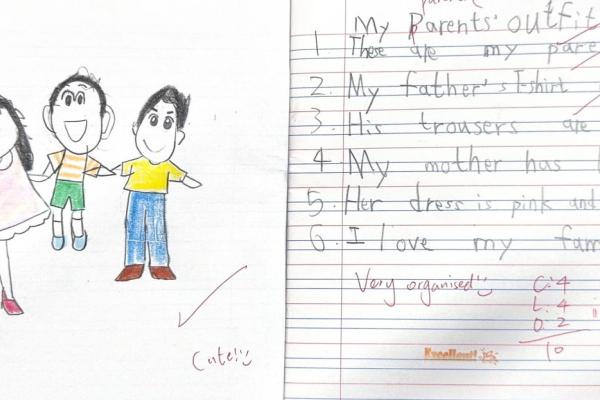 My Parents' outfit
1. These are my pare
2. My father's T-shirt
3. His trousers are
4. My mother has
5. Her dress is pink and
6. I love my fam
Very organised!
C: 4
L: 4
O: 2
10
Cute!
Excellent!